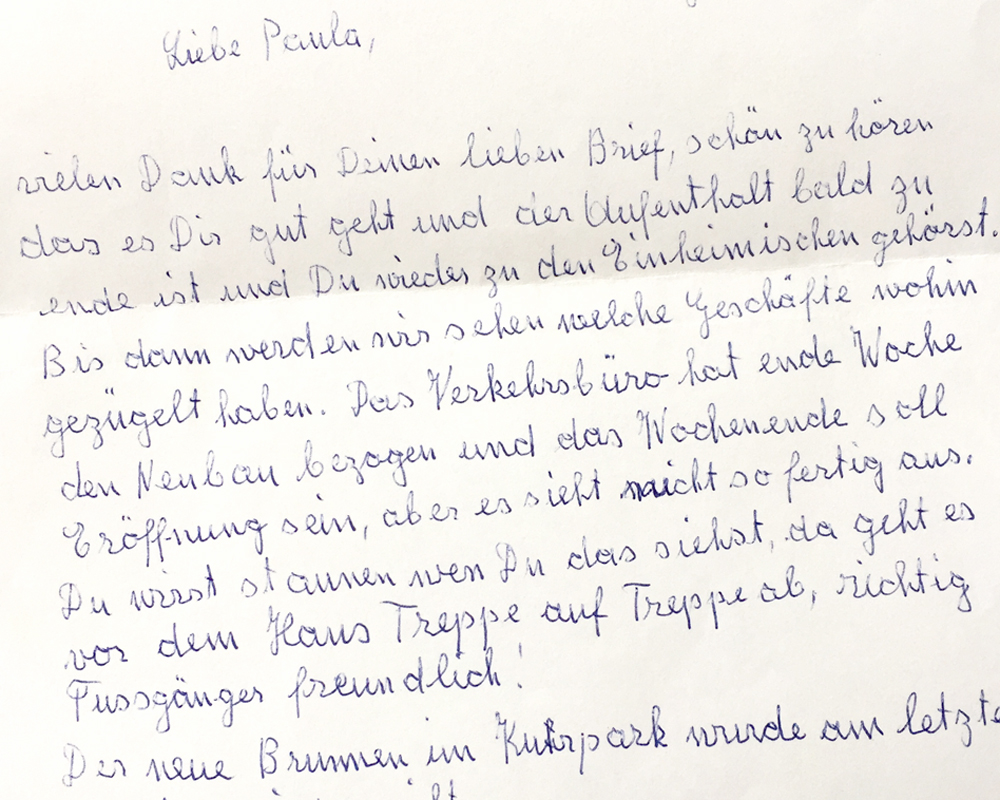 Liebe Paula,
vielen Dank für Deinen lieben Brief, schön zu hören
das es Dir gut geht und der Aufenthalt bald zu
ende ist und Du wieder zu den Einheimischen gehörst.
Bis dann werden wir sehen welche Geschäfte wohin
gezügelt haben. Das Verkehrsbüro hat ende Woche
den Neubau bezogen und das Wochenende soll
Eröffnung sein, aber es sieht nicht so fertig aus.
Du wirst staunen wen Du das siehst, da geht es
vor dem Haus Treppe auf Treppe ab, richtig
Fussgänger freundlich!
Der neue Brunnen im Kurpark wurde am letzte